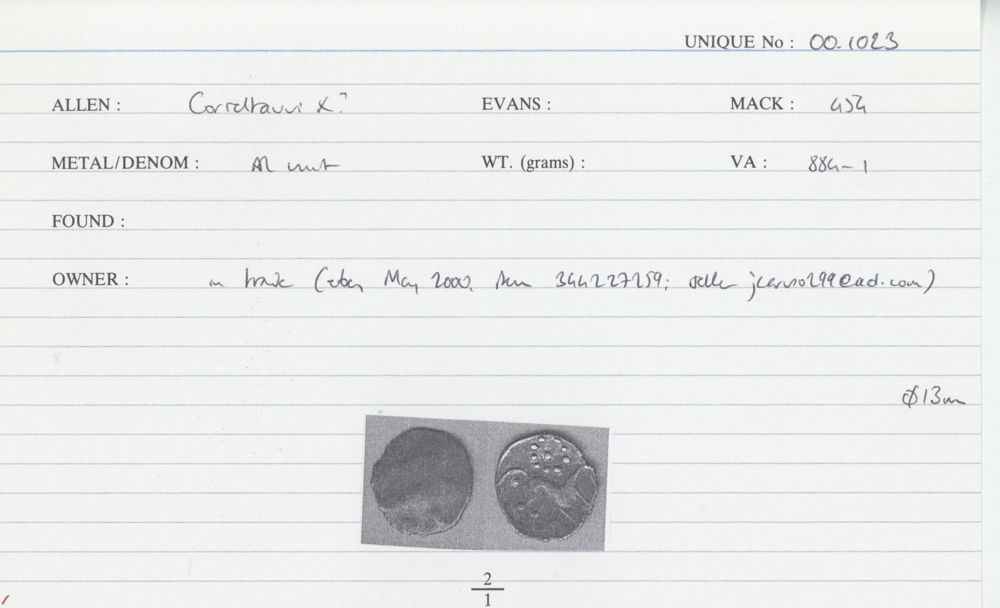 UNIQUE No : 00.1023
ALLEN : Correltauvi X? EVANS : MACK : 454
METAL/DENOM : AR unit WT. (grams) : VA : 884-1
FOUND :
OWNER : in trade (ebay, May 2000, item 344227259; seller @aol.com)
ø 13m
2
1